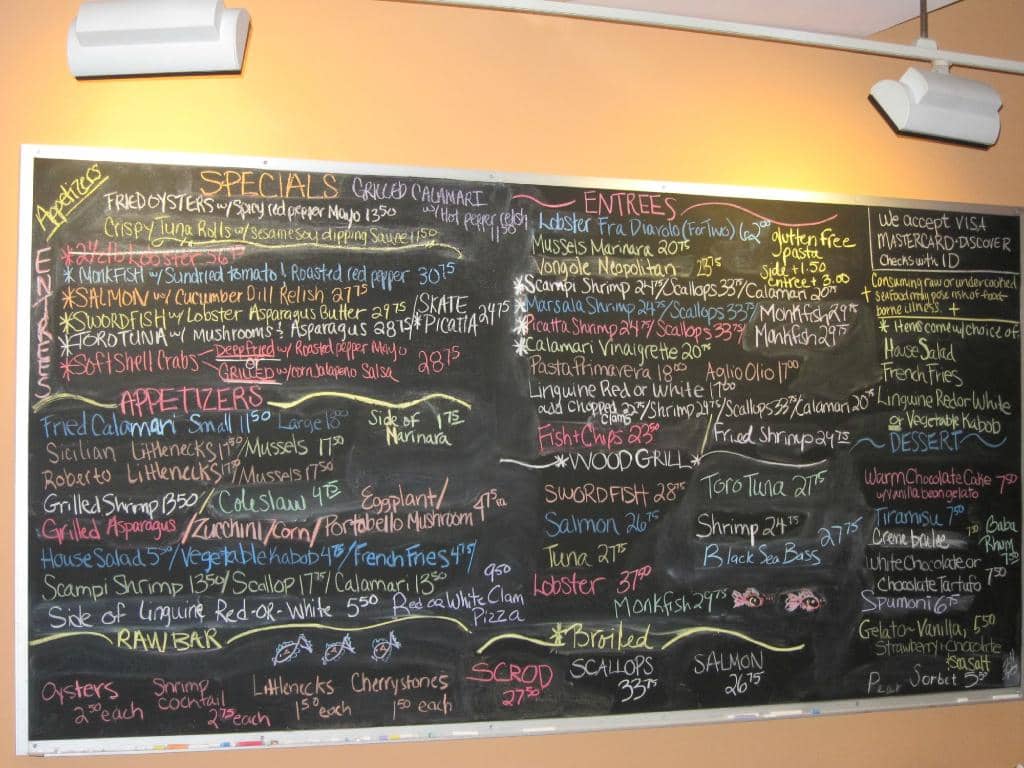 Appetizers
SPECIALS
FRIED OYSTERS w/ Spicy red pepper Mayo 13 50
GRILLED CALAMARI w/ Hot pepper relish 11 50
Crispy Tuna Rolls w/ sesame soy dipping Sauce 11 50
ENTREES
Lobster
*MONKFISH w/ Sundried tomato & Roasted red pepper 30 75
*SALMON w/ Cucumber Dill Relish 27 75
*SWORDFISH w/ Lobster Asparagus Butter 29 75
*TORO TUNA w/ Mushrooms & Asparagus 28 75
/SKATE
*PICATTA 24 75
*Soft Shell Crabs
Deep fried w/ Roasted pepper Mayo
or
GRILLED w/ corn Jalapeno Salsa
28 75
APPETIZERS
Fried Calamari Small 11 50 Large 18 00
Side of Marinara 1 75
Sicilian Littlenecks 17 50/Mussels 17 50
Roberto Littlenecks 17 50/Mussels 17 50
Grilled Shrimp 13 50/ Coleslaw 4 75
Eggplant/
Grilled Asparagus /Zucchini/Corn/Portobello Mushroom 4 75 ea
House Salad 5 50/Vegetable Kabob 4 75/French Fries 4 75
Scampi Shrimp 13 50/Scallop 17 75/Calamari 13 50
Side of Linguine Red-or-White 5 50
Red or White Clam Pizza 9 50
RAW BAR
Oysters 2 50 each
Shrimp cocktail 2 75 each
Littlenecks 1 50 each
Cherrystones 1 50 each
ENTREES
Lobster Fra Diavolo (For Two) 62 00
Mussels Marinara 20 75
Vongole Neopolitan 23 75
glutten free
pasta
side + 1.50
Entree + 3.00
*Scampi Shrimp 24 75/Scallops 33 75/Calamari 20 75
*Marsala Shrimp 24 75/Scallops 33 75/ Monkfish 29 75
*Picatta Shrimp 24 75/Scallops 33 75/ Monkfish 29 75
*Calamari Vinaigrette 20 75
Pasta Primavera 18 00 Aglio Olio 17 00
Linguine Red or White 17 00
Chopped Clams /Shrimp 24 75/Scallops 33 75/Calamari 20 75
Fish + Chips 23 50 /Fried Shrimp 24 75
*WOOD GRILL*
SWORDFISH 28 75
Toro Tuna 27 75
Salmon 26 75
Shrimp 24 75
Tuna 27 75
Black Sea Bass 27 75
Lobster 37 50
Monkfish 29 75
*Broiled
SCROD 27 50
SCALLOPS 33 75
SALMON 26 75
We accept VISA
MASTERCARD + DISCOVER
Checks with ID
Consuming raw or undercooked
+ seafood may pose risk of food-
borne illness. +
* Items come w/ choice of
House Salad
French Fries
Linguine Red or White
or Vegetable Kabob
DESSERT
Warm Chocolate Cake 7 50
w/ vanilla bean gelato
Tiramisu 7 50
Creme brulee 7 50
Baba Rhum 7 50
White Chocolate or
Chocolate Tartufo 7 50
Spumoni 6 75
Gelato ~ Vanilla, 5 50
Strawberry + Chocolate
+ Sea Salt
Sorbet 5 50